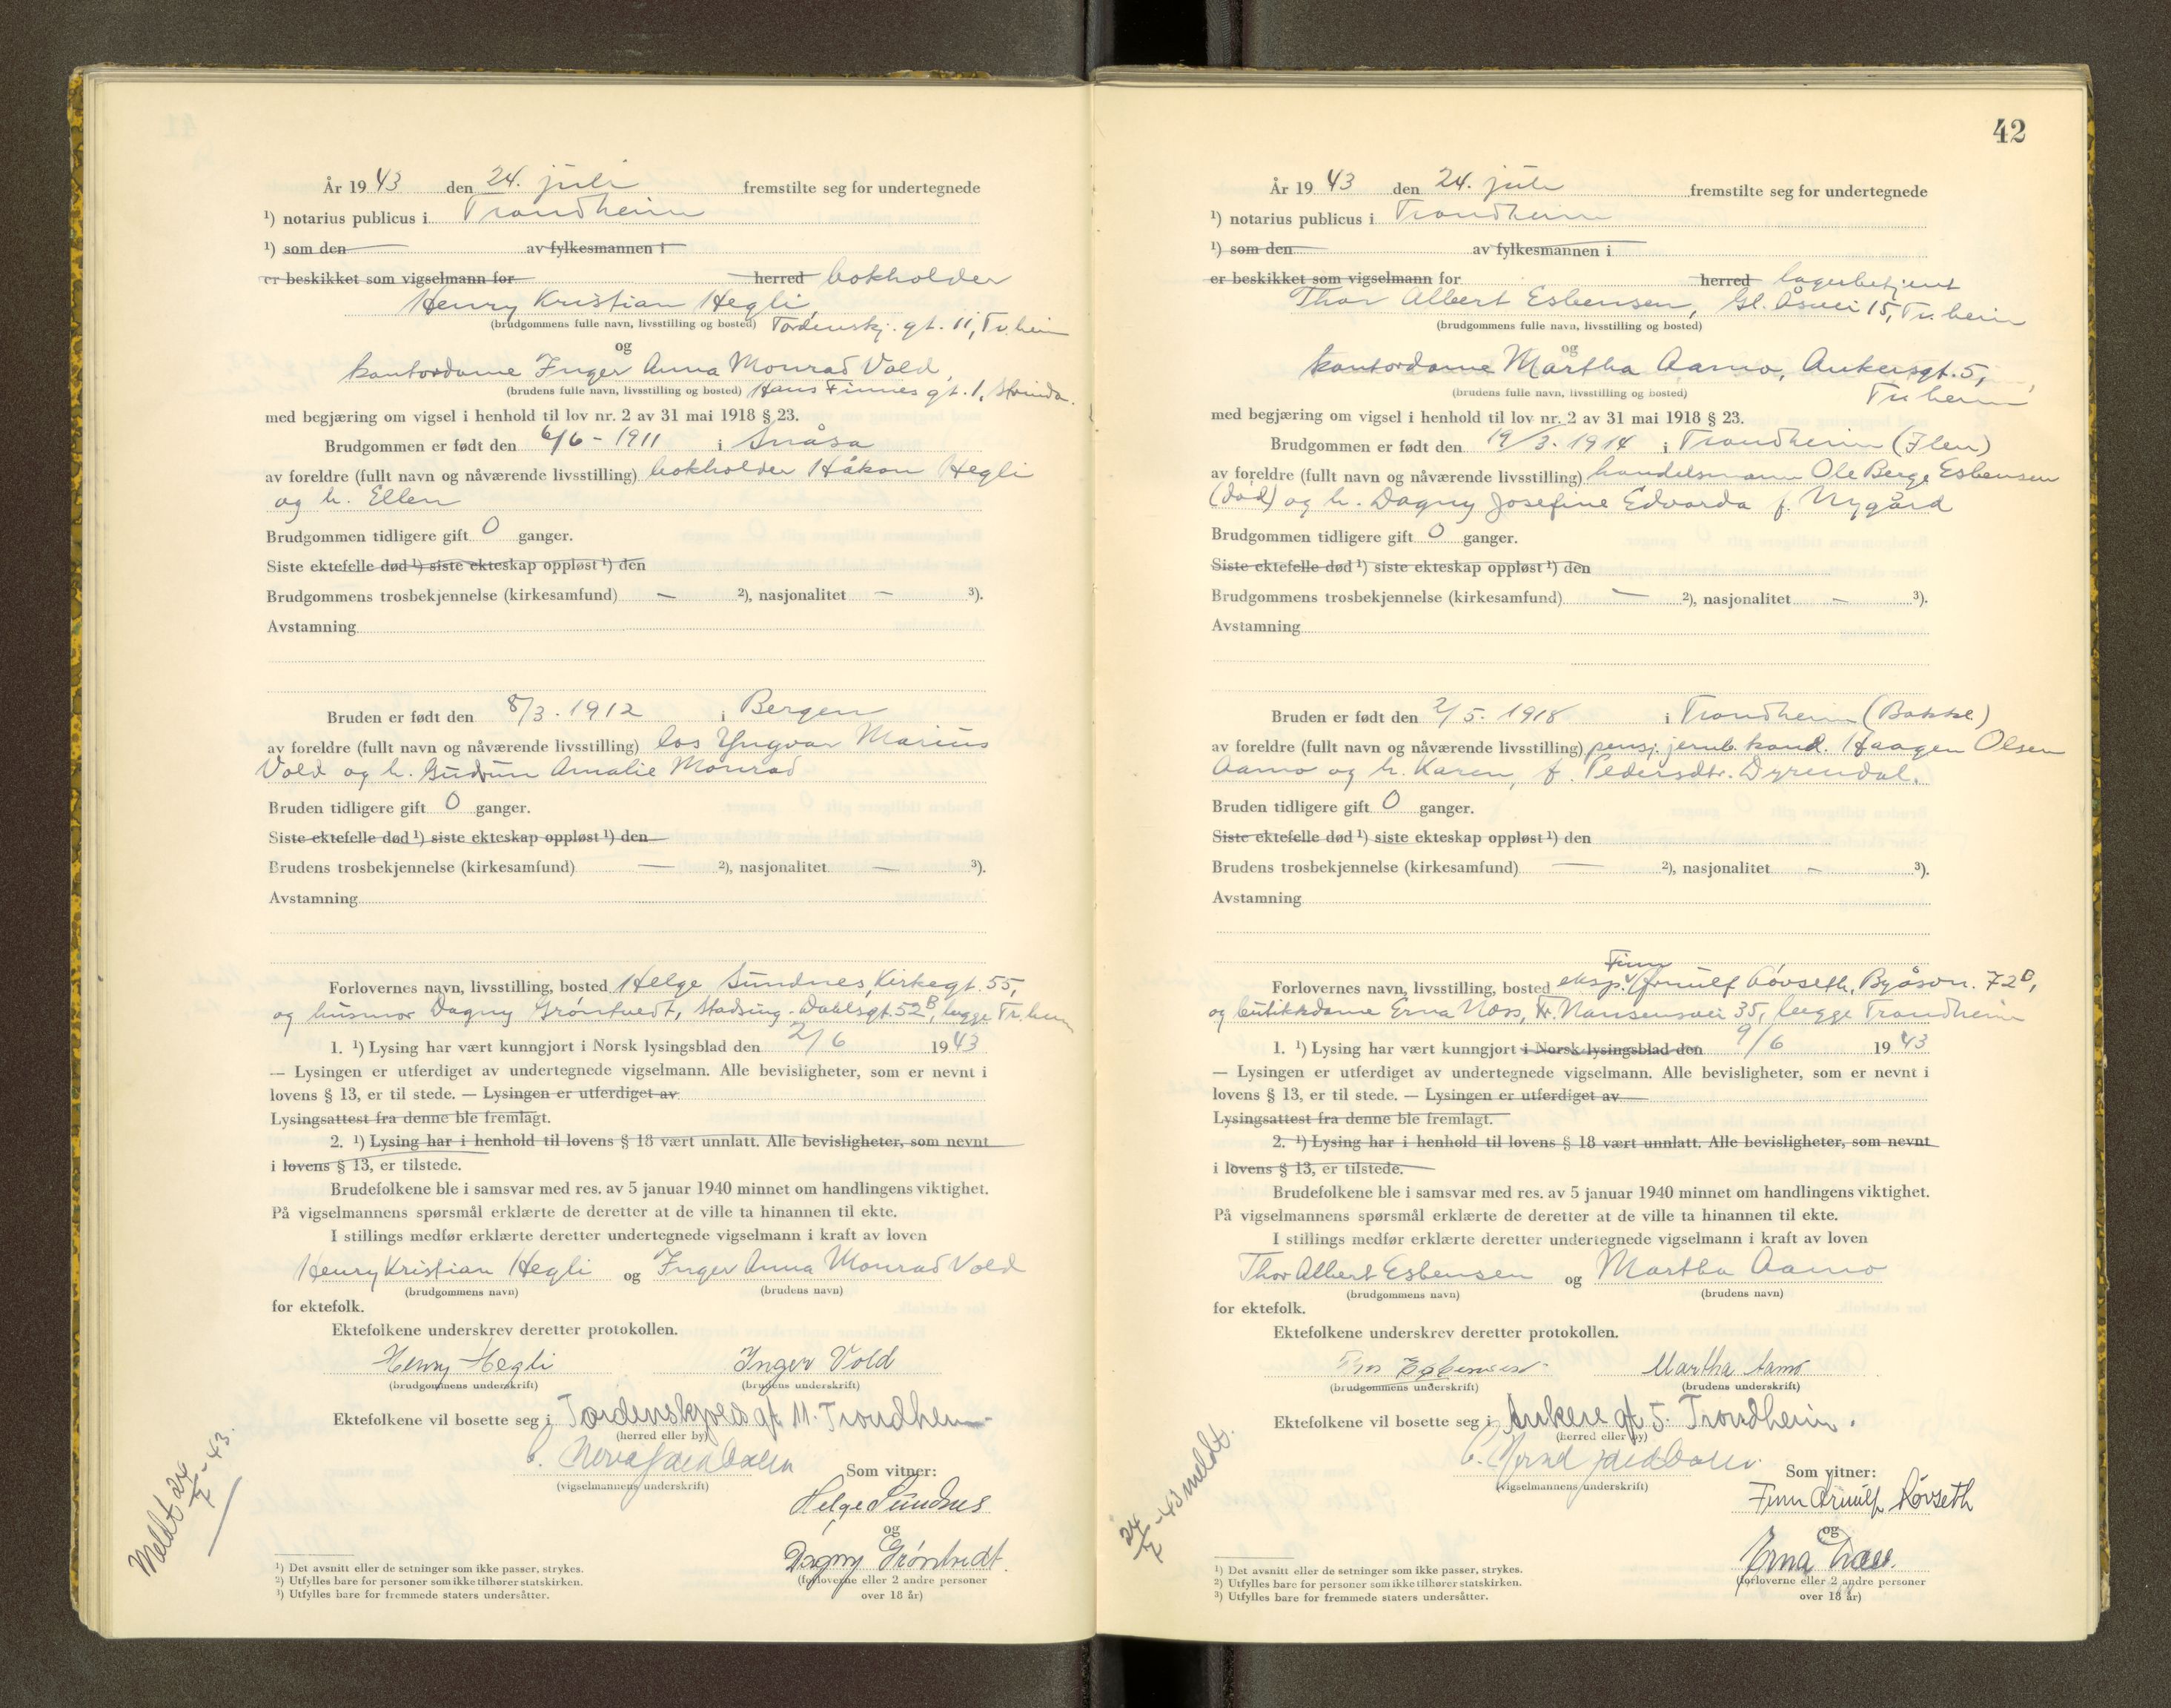 År 1943 den 24. juli fremstilte seg for undertegnede
¹) notarius publicus i Trondheim
¹) som den av fylkesmannen i
er beskikket som vigselmann for herred bokholder
Henry Kristian Hegli,
(brudgommens fulle navn, livsstilling og bosted) Tordenskj. gt. 11, Tr.heim
og
kontordame Inger Anna Monrad Vold,
(brudens fulle navn, livsstilling og bosted) Hans Finnes gt. 1, Strinda.
med begjæring om vigsel i henhold til lov nr. 2 av 31 mai 1918 § 23.
Brudgommen er født den 6/6 - 1911 i Snåsa
av foreldre (fullt navn og nåværende livsstilling) bokholder Håkon Hegli
og h. Ellen
Brudgommen tidligere gift 0 ganger.
Siste ektefelle død ¹) siste ekteskap oppløst ¹) den
Brudgommens trosbekjennelse (kirkesamfund) — ²), nasjonalitet — ³).
Avstamning
Bruden er født den 8/3. 1912 i Bergen
av foreldre (fullt navn og nåværende livsstilling) los Yngvar Marius
Vold og h. Gudrun Amalie Monrad
Bruden tidligere gift 0 ganger.
Siste ektefelle død ¹) siste ekteskap oppløst ¹) den
Brudens trosbekjennelse (kirkesamfund) — ²), nasjonalitet — ³).
Avstamning
Forlovernes navn, livsstilling, bosted Helge Sundnes, Kirkegt. 55,
og husmor Dagny Grøntvedt, Stadsing. Dahlsgt. 52B, begge Tr.heim
1. ¹) Lysing har vært kunngjort i Norsk lysingsblad den 2/6 1943
— Lysingen er utferdiget av undertegnede vigselmann. Alle bevisligheter, som er nevnt i
lovens § 13, er til stede. — Lysingen er utferdiget av
Lysingsattest fra denne ble fremlagt.
2. ¹) Lysing har i henhold til lovens § 18 vært unnlatt. Alle bevisligheter, som nevnt
i lovens § 13, er tilstede.
Brudefolkene ble i samsvar med res. av 5 januar 1940 minnet om handlingens viktighet.
På vigselmannens spørsmål erklærte de deretter at de ville ta hinannen til ekte.
I stillings medfør erklærte deretter undertegnede vigselmann i kraft av loven
Henry Kristian Hegli og Inger Anna Monrad Vold
(brudgommens navn) (brudens navn)
for ektefolk.
Ektefolkene underskrev deretter protokollen.
Henry Hegli Inger Vold
(brudgommens underskrift) (brudens underskrift)
Ektefolkene vil bosette seg i Tordenskjolds gt 11. Trondheim
(herred eller by)
(vigselmannens underskrift) Som vitner:
Helge Sundnes
og
Dagny Grøntvedt.
(forloverne eller 2 andre personer
over 18 år)
Meldt 24/7 - 43.
¹) Det avsnitt eller de setninger som ikke passer, strykes.
²) Utfylles bare for personer som ikke tilhører statskirken.
³) Utfylles bare for fremmede staters undersåtter.
42
År 1943 den 24. juli fremstilte seg for undertegnede
¹) notarius publicus i Trondheim
¹) som den av fylkesmannen i
er beskikket som vigselmann for herred lagerbetjent
Thor Albert Esbensen, Gl. Åsvei 15, Tr.heim
(brudgommens fulle navn, livsstilling og bosted)
og
kontordame Martha Aamo, Ankersgt. 5,
(brudens fulle navn, livsstilling og bosted) Tr.heim
med begjæring om vigsel i henhold til lov nr. 2 av 31 mai 1918 § 23.
Brudgommen er født den 19/3. 1914 i Trondheim (Ilen)
av foreldre (fullt navn og nåværende livsstilling) handelsmann Ole Berge Esbensen
(død) og h. Dagny Josefine Edvarda f. Nygård
Brudgommen tidligere gift 0 ganger.
Siste ektefelle død ¹) siste ekteskap oppløst ¹) den
Brudgommens trosbekjennelse (kirkesamfund) — ²), nasjonalitet — ³).
Avstamning
Bruden er født den 2/5. 1918 i Trondheim (Bakkl.)
av foreldre (fullt navn og nåværende livsstilling) pensj. jernb. kond. Haagen Olsen
Aamo og h. Karen, f. Pedersdtr. Dyrendal.
Bruden tidligere gift 0 ganger.
Siste ektefelle død ¹) siste ekteskap oppløst ¹) den
Brudens trosbekjennelse (kirkesamfund) — ²), nasjonalitet — ³).
Avstamning
Finn
Forlovernes navn, livsstilling, bosted eksp. Arnulf Røvseth, Byåsvn. 72B,
og butikkdame Erna Næss, Fr. Nansensvei 35, begge Trondheim
1. ¹) Lysing har vært kunngjort i Norsk lysingsblad den 9/6 1943
— Lysingen er utferdiget av undertegnede vigselmann. Alle bevisligheter, som er nevnt i
lovens § 13, er til stede. — Lysingen er utferdiget av
Lysingsattest fra denne ble fremlagt.
2. ¹) Lysing har i henhold til lovens § 18 vært unnlatt. Alle bevisligheter, som nevnt
i lovens § 13, er tilstede.
Brudefolkene ble i samsvar med res. av 5 januar 1940 minnet om handlingens viktighet.
På vigselmannens spørsmål erklærte de deretter at de ville ta hinannen til ekte.
I stillings medfør erklærte deretter undertegnede vigselmann i kraft av loven
Thor Albert Esbensen og Martha Aamo
(brudgommens navn) (brudens navn)
for ektefolk.
Ektefolkene underskrev deretter protokollen.
Thor Esbensen Martha Aamo
(brudgommens underskrift) (brudens underskrift)
Ektefolkene vil bosette seg i Ankers gt 5. Trondheim.
(herred eller by)
(vigselmannens underskrift) Som vitner:
Finn Arnulf Røvseth
og
Erna Næss.
(forloverne eller 2 andre personer
over 18 år)
24/7 - 43 meldt.
¹) Det avsnitt eller de setninger som ikke passer, strykes.
²) Utfylles bare for personer som ikke tilhører statskirken.
³) Utfylles bare for fremmede staters undersåtter.